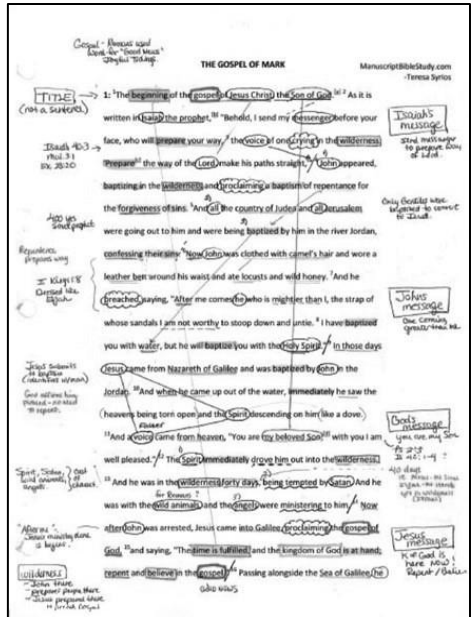 Gospel - Romans used
word for "Good News"
Joyful Tidings
THE GOSPEL OF MARK
ManuscriptBibleStudy.com
-Teresa Syrios
TITLE
(not a sentence)
1: ¹The beginning of the gospel of Jesus Christ, the Son of God. ² As it is
written in Isaiah the prophet, "Behold, I send my messenger before your
face, who will prepare your way, ³ the voice of one crying in the wilderness:
'Prepare the way of the Lord, make his paths straight,'" ⁴ John appeared,
baptizing in the wilderness and proclaiming a baptism of repentance for
the forgiveness of sins. ⁵ And all the country of Judea and all Jerusalem
were going out to him and were being baptized by him in the river Jordan,
confessing their sins. ⁶ Now John was clothed with camel's hair and wore a
leather belt around his waist and ate locusts and wild honey. ⁷ And he
preached, saying, "After me comes he who is mightier than I, the strap of
whose sandals I am not worthy to stoop down and untie. ⁸ I have baptized
you with water, but he will baptize you with the Holy Spirit." ⁹ In those days
Jesus came from Nazareth of Galilee and was baptized by John in the
Jordan. ¹⁰ And when he came up out of the water, immediately he saw the
heavens being torn open and the Spirit descending on him like a dove.
¹¹ And a voice came from heaven, "You are my beloved Son; with you I am
well pleased." ¹² The Spirit immediately drove him out into the wilderness.
¹³ And he was in the wilderness forty days, being tempted by Satan. And he
was with the wild animals, and the angels were ministering to him. ¹⁴ Now
after John was arrested, Jesus came into Galilee, proclaiming the gospel of
God, ¹⁵ and saying, "The time is fulfilled, and the kingdom of God is at hand;
repent and believe in the gospel." ¹⁶ Passing alongside the Sea of Galilee, he
Isaiah's
message
send messenger
to prepare way
of Lord.
Isaiah 40:3
Mal. 3:1
Ex. 23:20
400 yrs
Only Gentiles were
baptized to convert
I Kings 1:8
John's
message
One coming
greater than me
God's
message
you are my Son
40 days
Spirit, Satan,
wild animals,
angels
Father
Jesus'
message
K of God is
here Now!
Repent/Believe
Wilderness
- John there